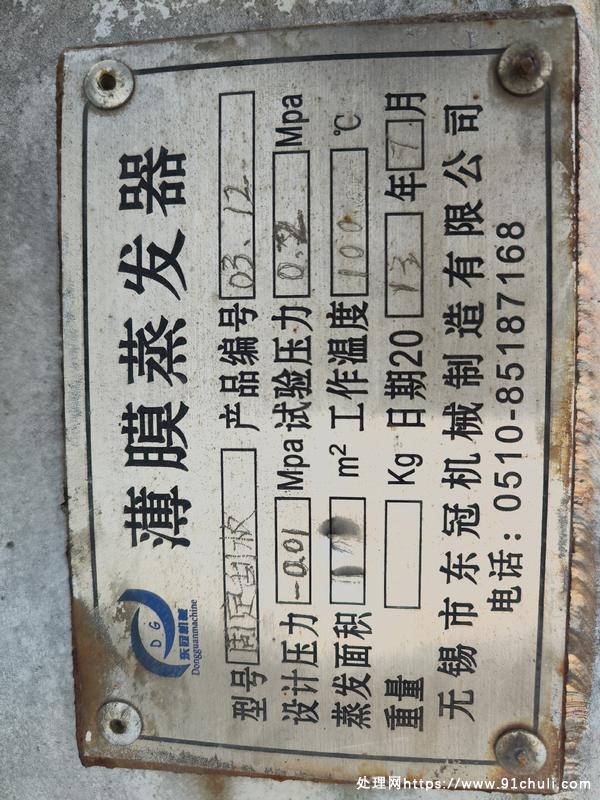 D G
东冠机械
Dongguanmachine
薄膜蒸发器
型号 固定刮板 产品编号 03.12
设计压力 -0.01 Mpa 试验压力 0.2 Mpa
蒸发面积 m² 工作温度 100 ℃
重量 Kg 日期20 13 年 7 月
无锡市东冠机械制造有限公司
电话: 0510-85187168
处理网https://www.91chuli.com